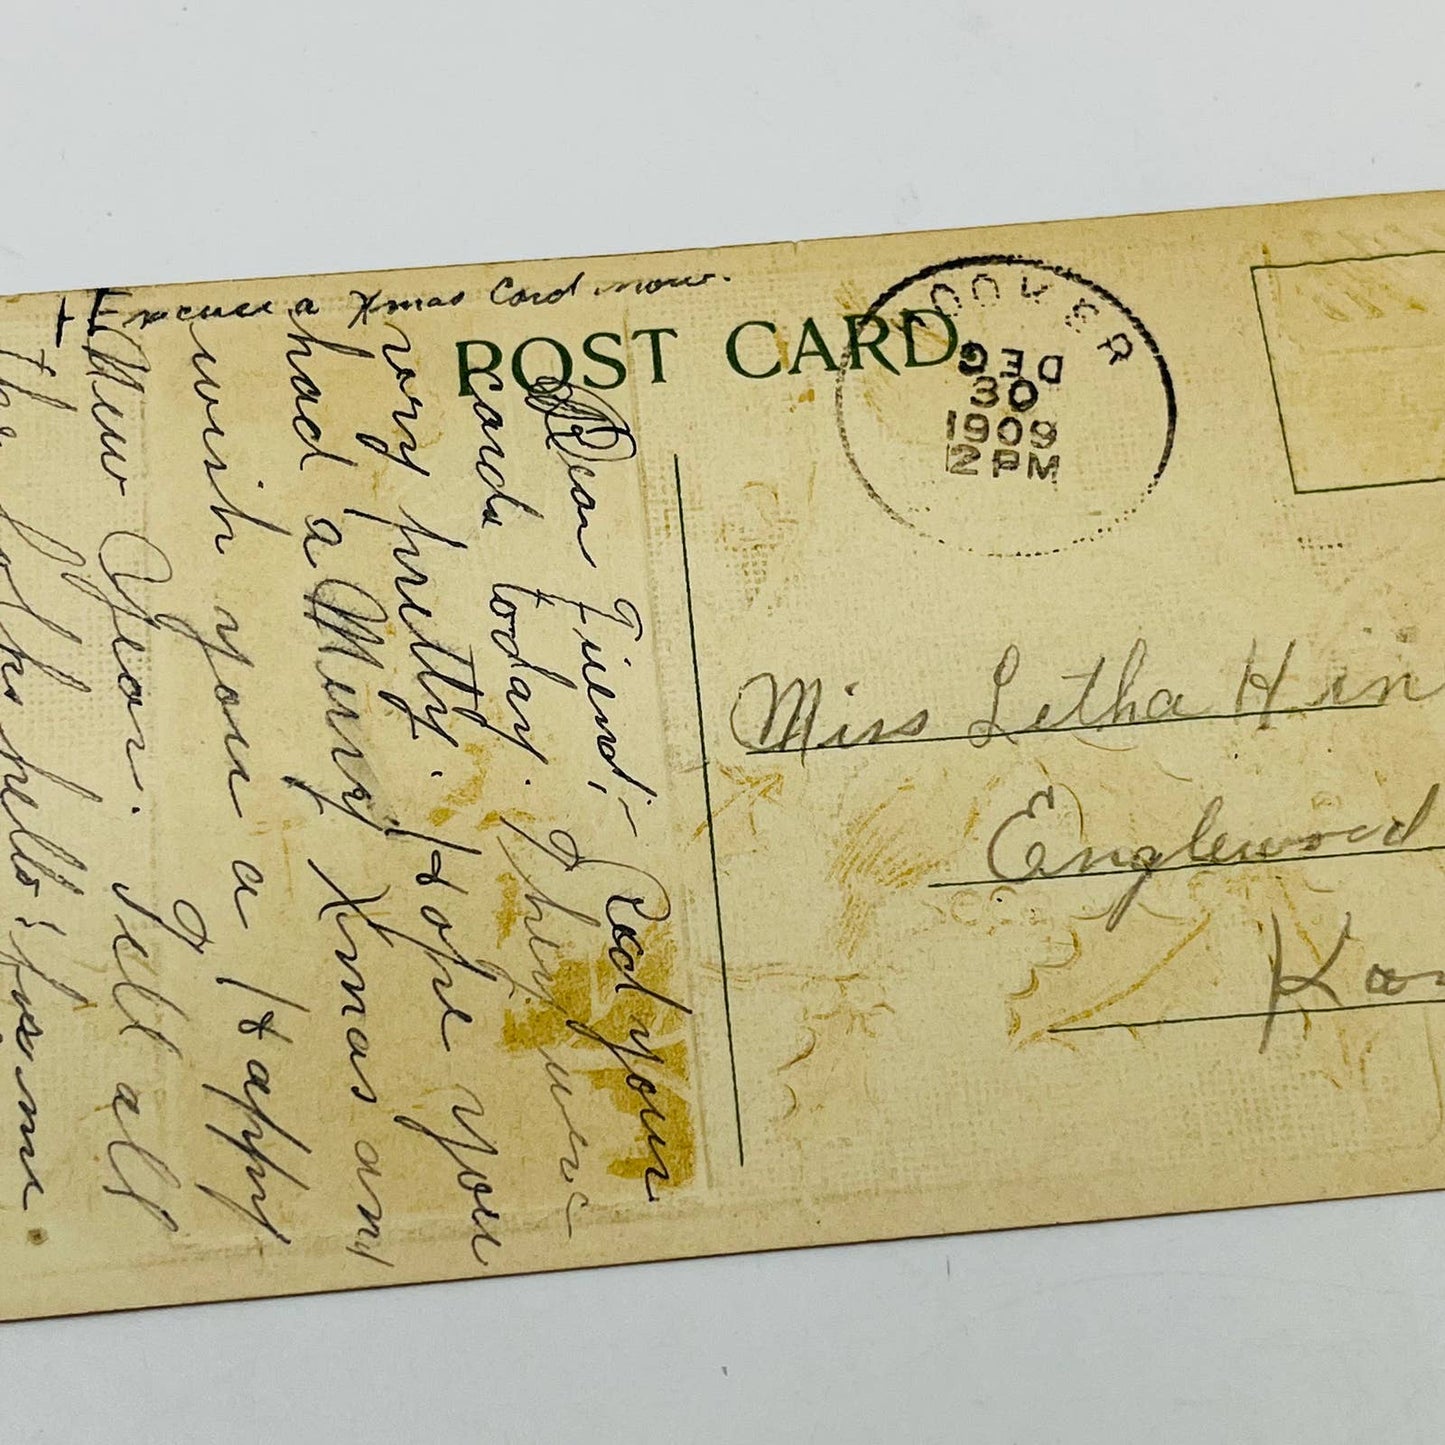 Excuse a Xmas Card now.
POST CARD
COVER
DEC
30
1909
2 PM
Dear Friend;- Recd your
cards today. They were
very pretty. Hope you
had a Merry Xmas and
wish you a Happy
New Year. Tell all
the folks hello
Miss Letha Hin
Englewood
Kan